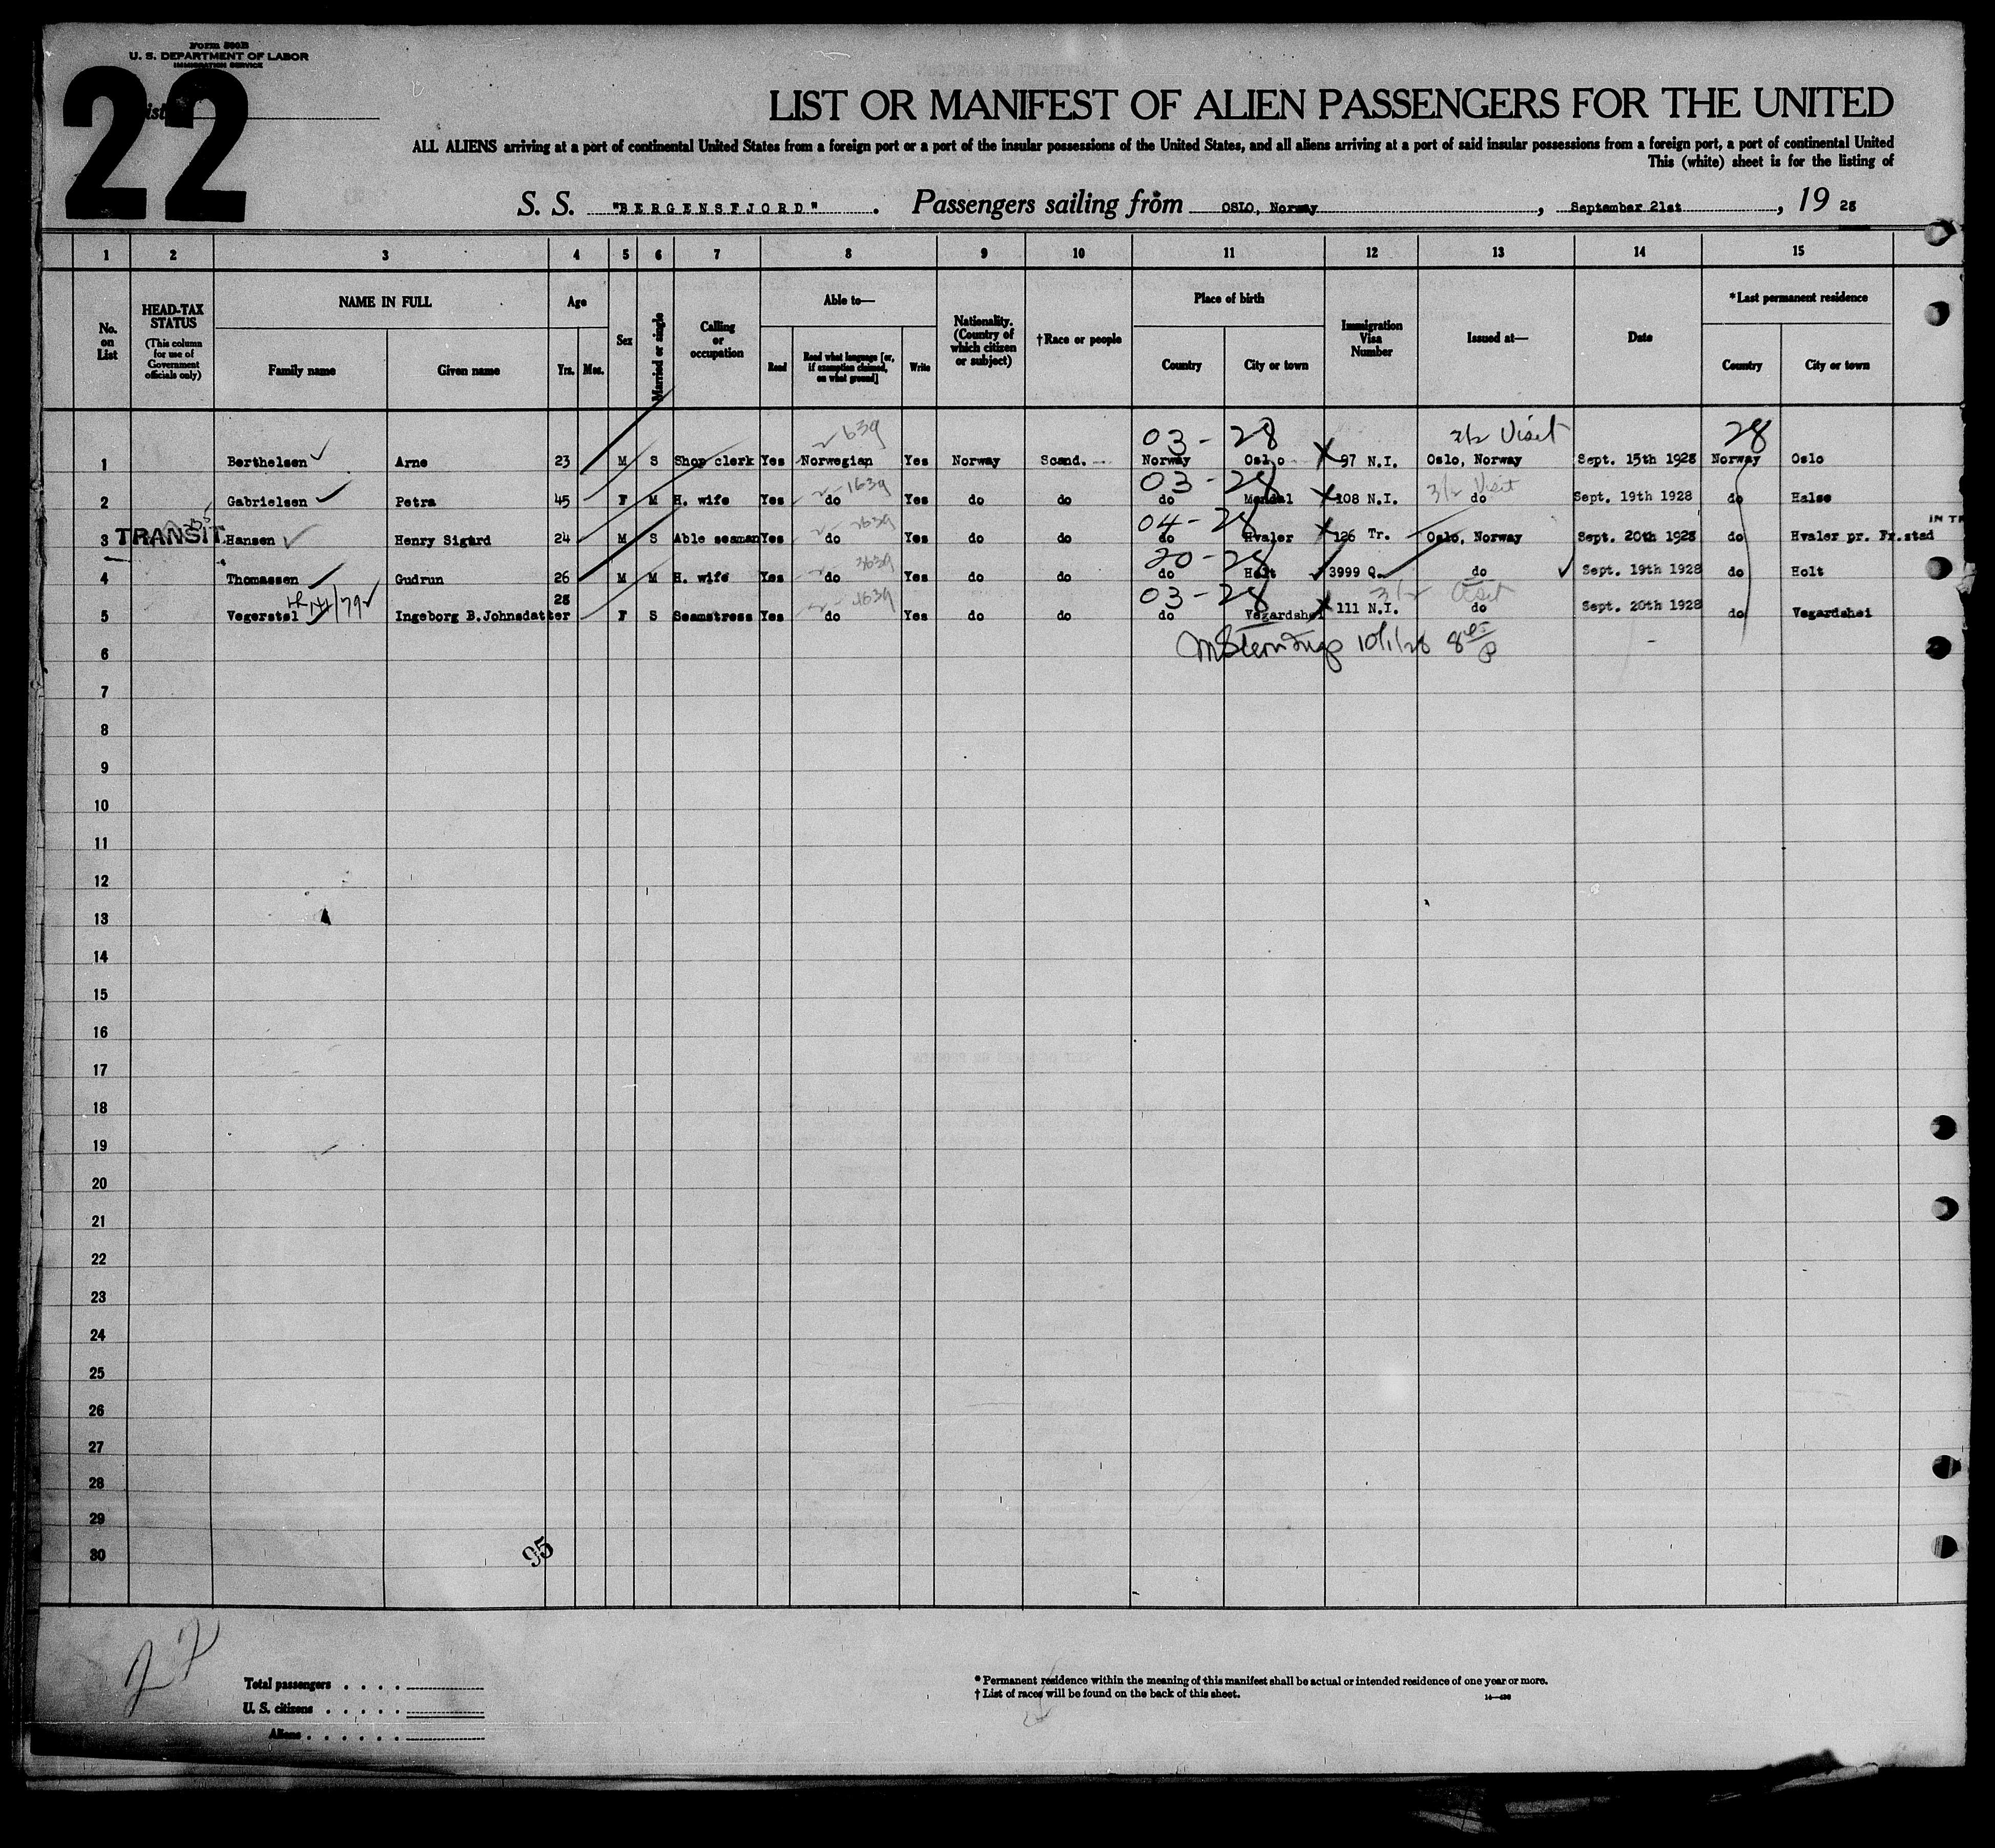 Form 500B
U. S. DEPARTMENT OF LABOR
IMMIGRATION SERVICE
22
List
LIST OR MANIFEST OF ALIEN PASSENGERS FOR THE UNITED
ALL ALIENS arriving at a port of continental United States from a foreign port or a port of the insular possessions of the United States, and all aliens arriving at a port of said insular possessions from a foreign port, a port of continental United
This (white) sheet is for the listing of
S. S. "BERGENSFJORD". Passengers sailing from OSLO, Norway, September 21st, 19 28
1 2 3 4 5 6 7 8 9 10 11 12 13 14 15
No. on List
HEAD-TAX STATUS
(This column for use of Government officials only)
NAME IN FULL
Family name Given name
Age
Yrs. Mos.
Sex
Married or single
Calling or occupation
Able to—
Read Read what language [or, if exemption claimed, on what ground] Write
Nationality. (Country of which citizen or subject)
†Race or people
Place of birth
Country City or town
Immigration Visa Number
Issued at—
Date
*Last permanent residence
Country City or town
639 03-28 3/2 Visit 28
1 Berthelsen Arne 23 M S Shop clerk Yes Norwegian Yes Norway Scand. Norway Oslo 97 N.I. Oslo, Norway Sept. 15th 1928 Norway Oslo
1639 03-28 3/2 Visit
2 Gabrielsen Petra 45 F M H. wife Yes do Yes do do do Mandal 108 N.I. do Sept. 19th 1928 do Halse
2639 04-28 IN TR
3 TRANSIT Hansen Henry Sigård 24 M S Able seaman Yes do Yes do do do Hvaler 126 Tr. Oslo, Norway Sept. 20th 1928 do Hvaler pr. Fr.stad
3639 20-28
4 Thomassen Gudrun 26 M M H. wife Yes do Yes do do do Holt 3999 Q. do Sept. 19th 1928 do Holt
4639 03-28 3/2 Visit
5 Vegerstøl Ingeborg B.Johnsdatter 28 F S Seamstress Yes do Yes do do do Vegardshei 111 N.I. do Sept. 20th 1928 do Vegardshei
6 10/1/28
7
8
9
10
11
12
13
14
15
16
17
18
19
20
21
22
23
24
25
26
27
28
29
30
95
22
Total passengers . . . .
U. S. citizens . . . . .
Aliens . . . . . .
* Permanent residence within the meaning of this manifest shall be actual or intended residence of one year or more.
† List of races will be found on the back of this sheet.